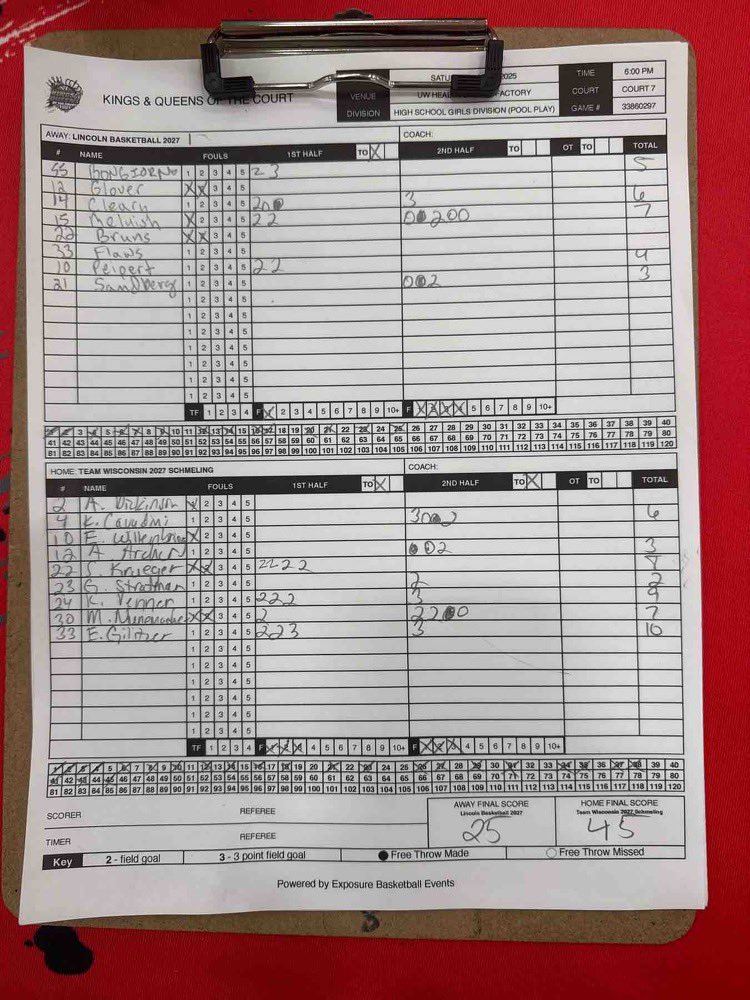 KINGS & QUEENS OF THE COURT
SATU 2025 TIME 6:00 PM
VENUE UW HEAL FACTORY COURT COURT 7
DIVISION HIGH SCHOOL GIRLS DIVISION (POOL PLAY) GAME # 33860297
AWAY: LINCOLN BASKETBALL 2027 COACH:
# NAME FOULS 1ST HALF TO X 2ND HALF TO OT TO TOTAL
55 BONGIORNO 1 2 3 4 5 2 3 5
12 Glover X X 3 4 5
14 Cleary 1 2 3 4 5 3 6
15 X 2 3 4 5 2 2 7
22 Bruns X X 3 4 5
33 Flaws 1 2 3 4 5
10 Peipert 1 2 3 4 5 2 2 4
21 Sandberg 1 2 3 4 5 3
1 2 3 4 5
1 2 3 4 5
1 2 3 4 5
1 2 3 4 5
1 2 3 4 5
1 2 3 4 5
1 2 3 4 5
TF 1 2 3 4 F X 2 3 4 5 6 7 8 9 10+ F X X X X 5 6 7 8 9 10+
1 2 3 4 5 6 7 8 9 10 11 12 13 14 15 16 17 18 19 20 21 22 23 24 25 26 27 28 29 30 31 32 33 34 35 36 37 38 39 40
41 42 43 44 45 46 47 48 49 50 51 52 53 54 55 56 57 58 59 60 61 62 63 64 65 66 67 68 69 70 71 72 73 74 75 76 77 78 79 80
81 82 83 84 85 86 87 88 89 90 91 92 93 94 95 96 97 98 99 100 101 102 103 104 105 106 107 108 109 110 111 112 113 114 115 116 117 118 119 120
HOME: TEAM WISCONSIN 2027 SCHMELING COACH:
# NAME FOULS 1ST HALF TO X 2ND HALF TO X OT TO TOTAL
2 A. Dickinson X 2 3 4 5
4 K. 1 2 3 4 5 6
10 E. X 2 3 4 5
12 A Archer 1 2 3 4 5 3
22 S. Krueger X X 3 4 5 2 2 2 2 8
23 G. 1 2 3 4 5 2 2
24 K. Venner 1 2 3 4 5 2 2 2 3 9
30 M. X X 3 4 5 2 7
33 E. Gilitzer 1 2 3 4 5 2 2 3 3 10
1 2 3 4 5
1 2 3 4 5
1 2 3 4 5
1 2 3 4 5
1 2 3 4 5
1 2 3 4 5
TF 1 2 3 4 F X X X 4 5 6 7 8 9 10+ F X X X 4 5 6 7 8 9 10+
1 2 3 4 5 6 7 8 9 10 11 12 13 14 15 16 17 18 19 20 21 22 23 24 25 26 27 28 29 30 31 32 33 34 35 36 37 38 39 40
41 42 43 44 45 46 47 48 49 50 51 52 53 54 55 56 57 58 59 60 61 62 63 64 65 66 67 68 69 70 71 72 73 74 75 76 77 78 79 80
81 82 83 84 85 86 87 88 89 90 91 92 93 94 95 96 97 98 99 100 101 102 103 104 105 106 107 108 109 110 111 112 113 114 115 116 117 118 119 120
SCORER REFEREE AWAY FINAL SCORE HOME FINAL SCORE
Lincoln Basketball 2027 Team Wisconsin 2027 Schmeling
TIMER REFEREE 25 45
Key 2 - field goal 3 - 3 point field goal Free Throw Made Free Throw Missed
Powered by Exposure Basketball Events